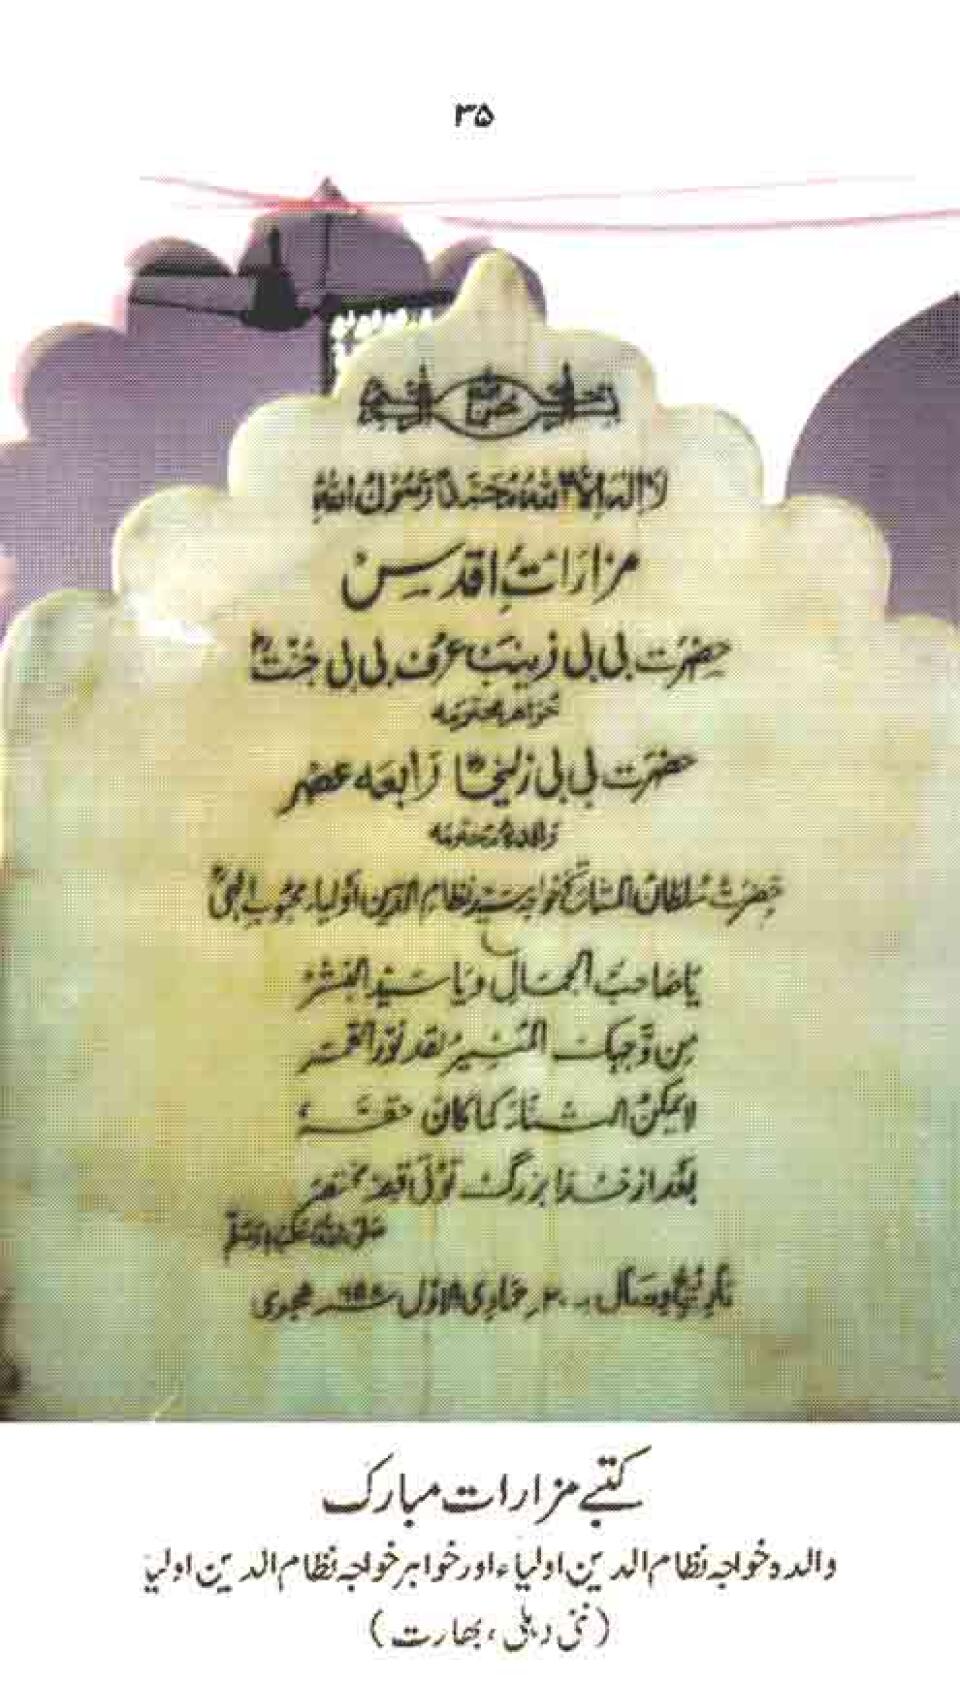 ۳۵
بسم اللہ الرحمن الرحیم
لَا اِلٰهَ اِلَّا اللهُ مُحَمَّدٌ رَّسُولُ اللهِ
مزاراتِ اقدس
حضرت بی بی زینب عرف بی بی جنتؒ
خواہر محترمہ
حضرت بی بی زلیخاؒ رابعہ عصر
والدہ محترمہ
حضرت سلطان المشائخ خواجہ سید نظام الدین اولیاء محبوب الٰہیؒ
یا صاحبَ الجمال و یا سید البشر
من وجہک المنیر لقد نور القمر
لا یمکن الثناء کما کان حقہ
بعد از خدا بزرگ توئی قصہ مختصر
صلی اللہ علیہ وسلم
تاریخ وصال ۳۰ جمادی الاول ۶۵۸ ہجری
کتبے مزارات مبارک
والدہ خواجہ نظام الدین اولیاء اور خواہر خواجہ نظام الدین اولیا
(نئی دہلی، بھارت)